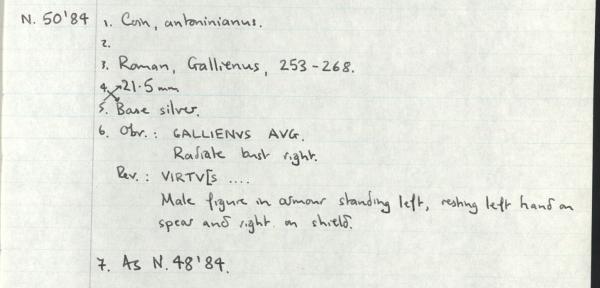 N. 50'84 1. Coin, antoninianus.
2.
3. Roman, Gallienus, 253-268.
4. 21.5 mm
5. Base silver.
6. Obv.: GALLIENVS AVG.
Radiate bust right.
Rev.: VIRTV[S ....
Male figure in armour standing left, resting left hand on
spear and right on shield.
7. As N. 48'84.